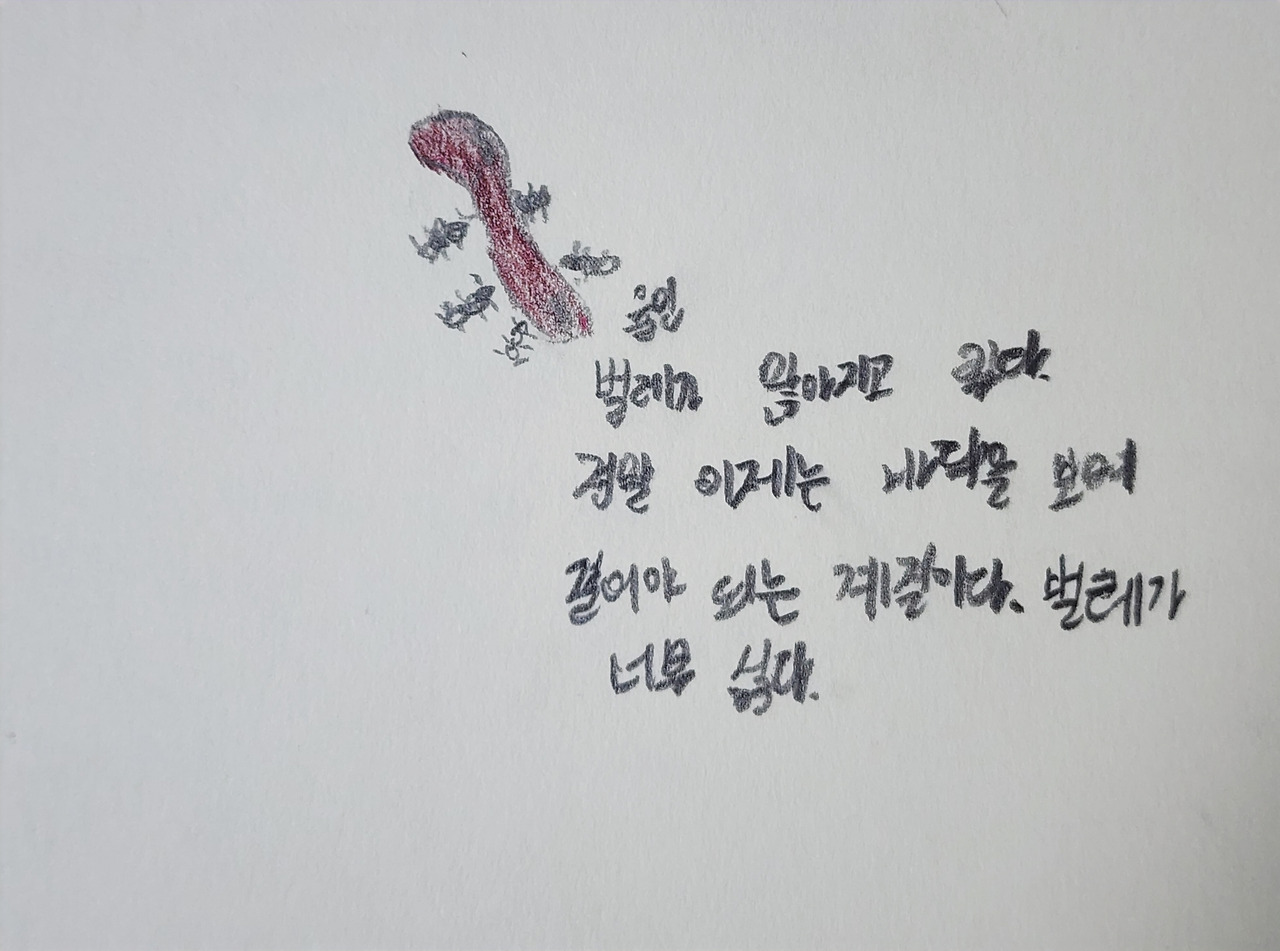 벌레가 많아지고 있다.
정말 이제는 바닥을 보며
걸어야 되는 계절이다. 벌레가
너무 싫다.